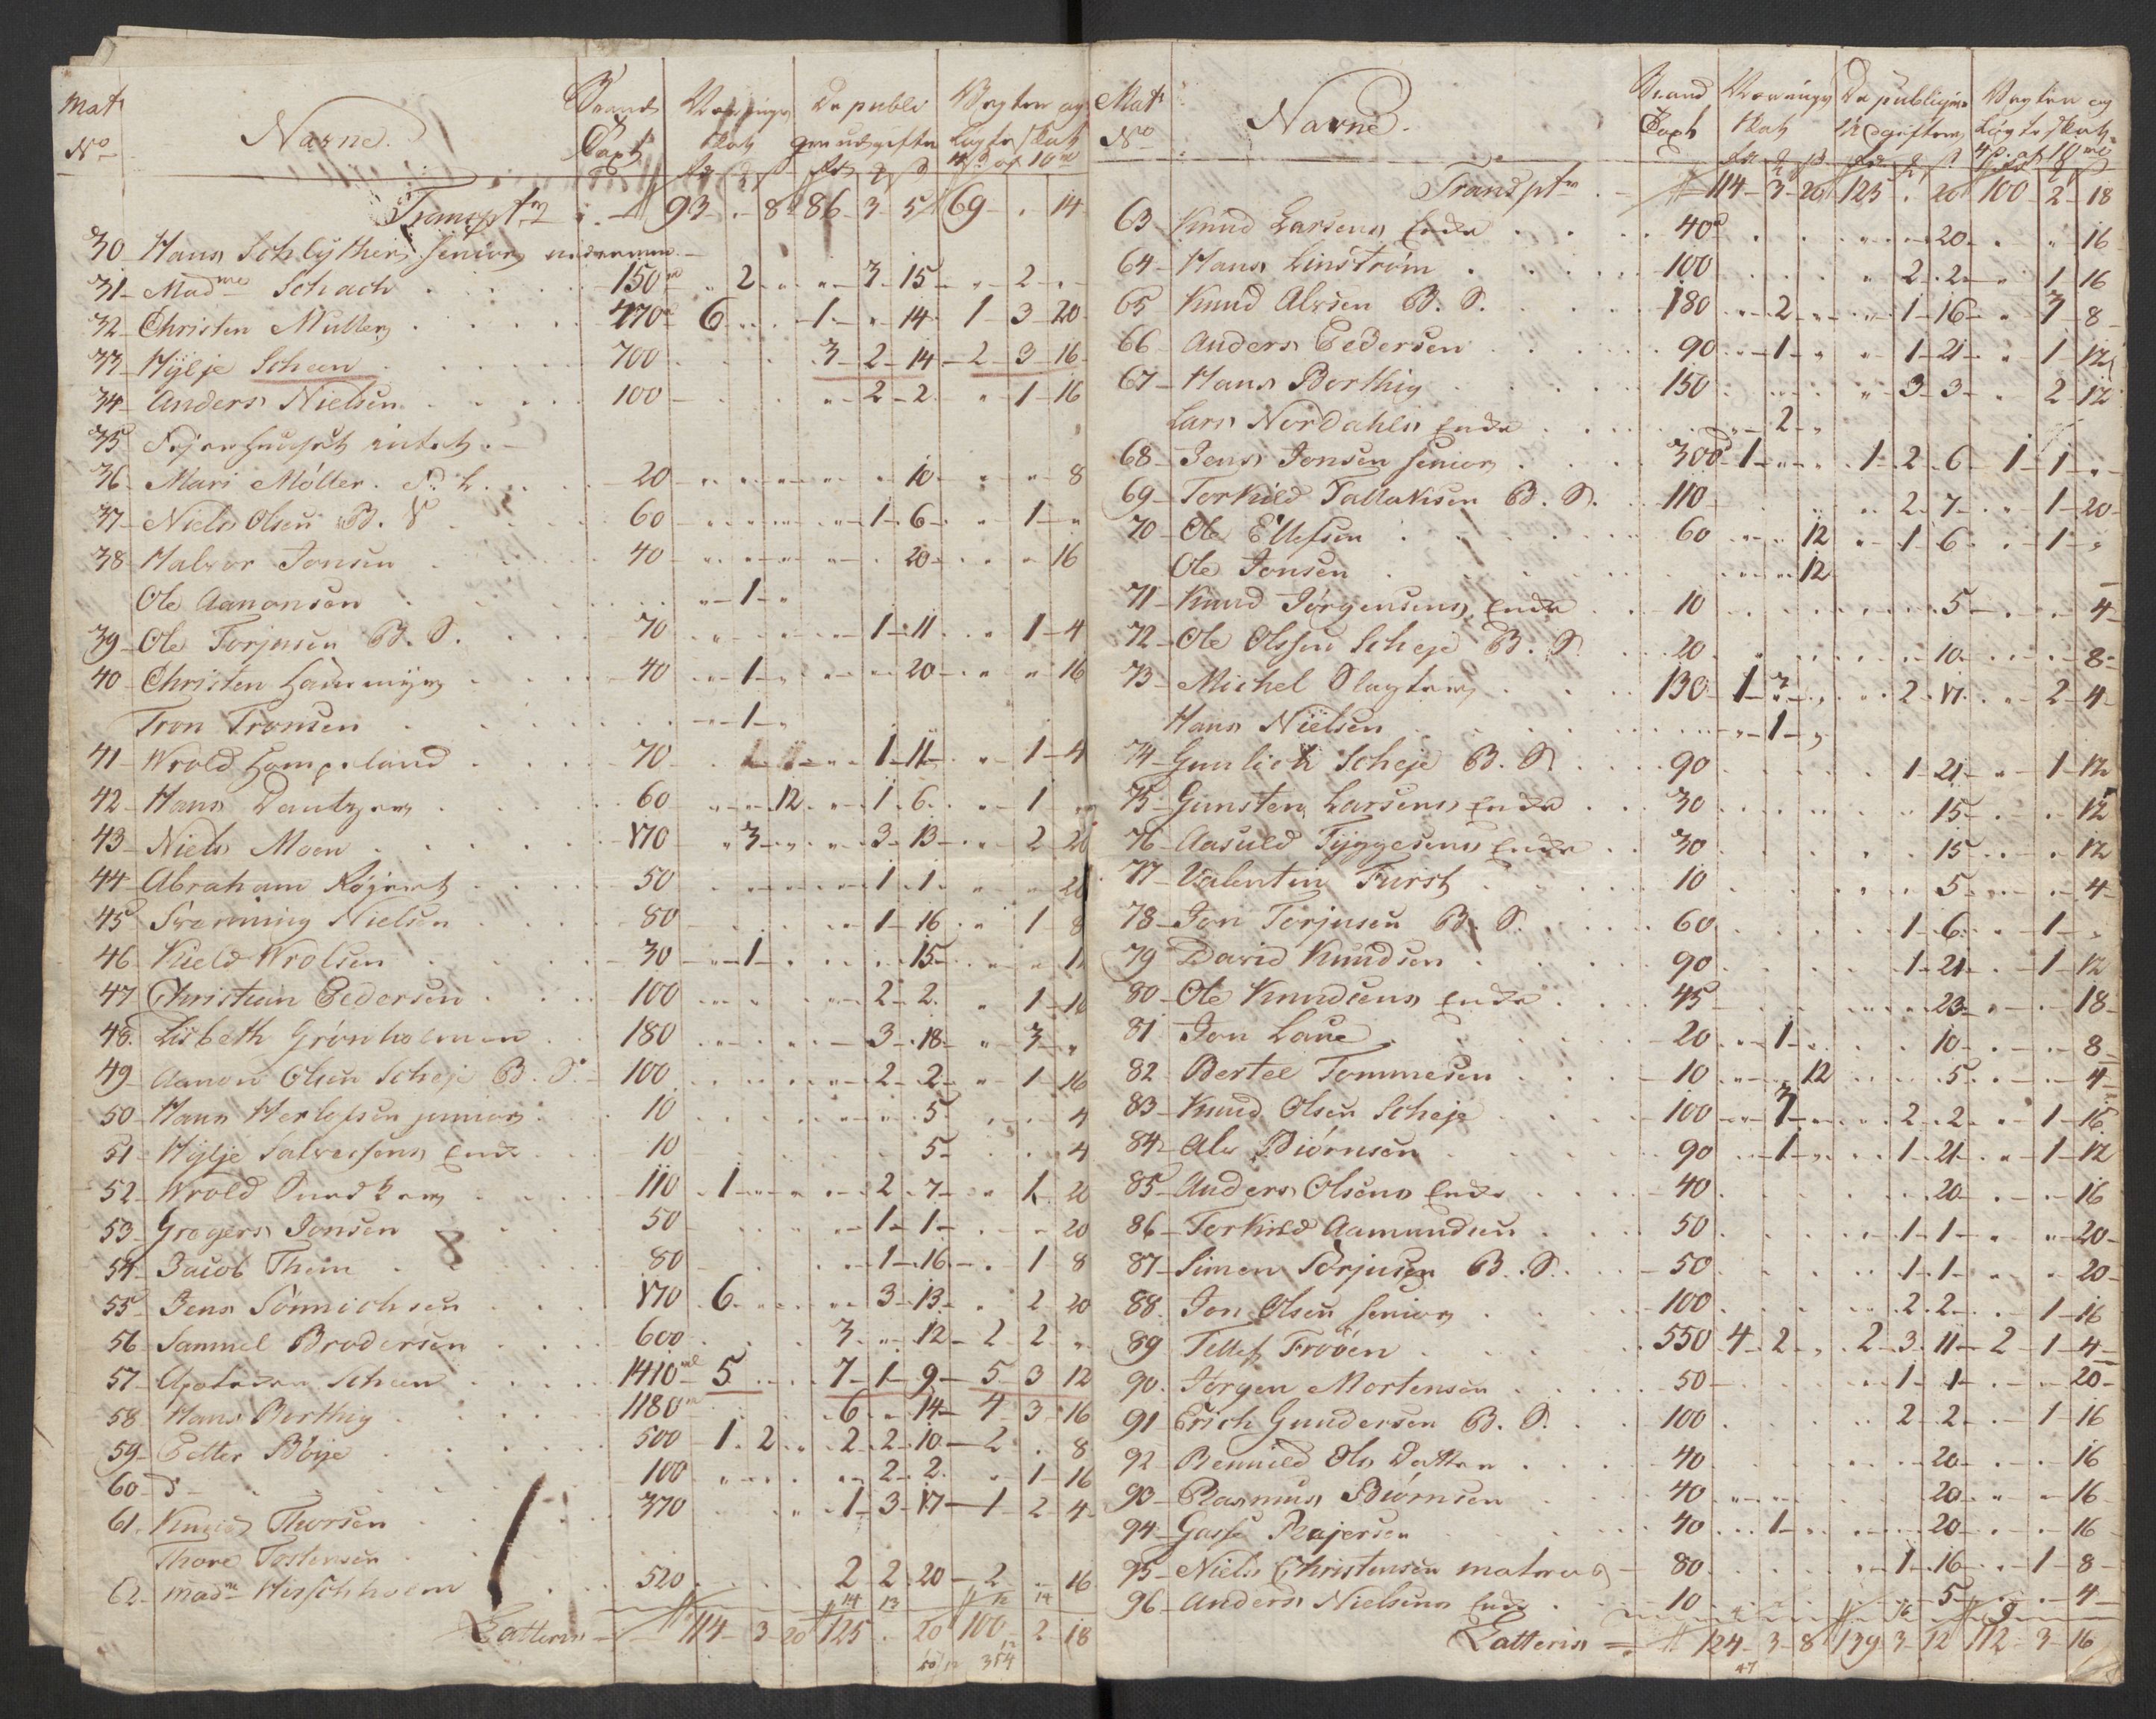 Mat No Navne. Brand Taxt Nærings Skat De publiqve udgifter Vegter og Løgte Skat 4 s. af 10 rd
Transptr 93 - " 8 86 - 3 - 5 69 - " 14
30 Hans Schlÿther senior
31 Madme Schach 150 " 2 " " 3 15 " 2 "
32 Christen Muller 270 6 " " 1 " 14 1 3 20
33 Hÿlje Scheen 700 3 2 14 2 3 16
34 Anders Nielsen 100 " 2 2 " 1 16
35 intet
36 Mari Møller 20 " " 10 " " 8
37 Niels Olsen B. S 60 " 1 6 " 1 "
38 Halvor Jonsen 40 " " 20 " " 16
Ole Aanonsen " 1 "
39 Ole Torjusen B. S. 70 " 1 11 " 1 4
40 Christen 40 " 1 " " " 20 " " 16
Tron Tronsen " 1 "
41 Wrold 70 " 1 11 " 1 4
42 Hans 60 " " 12 " 1 6 " 1 "
43 Niels Moen 170 " 3 " " 3 13 " 2 20
44 Abraham 50 " 1 1 " " 20
45 Svenning Nielsen 80 " 1 16 " 1 8
46 Kield Wrolsen 30 " 1 " " " 15 " " 12
47 Christian Pedersen 100 " 2 2 " 1 16
48 Lisbeth Grønholmen 180 " 3 18 " 3 "
49 Aanon Olsen Scheje B. S. 100 " 2 2 " 1 16
50 Hans Herlofsen junior 10 " " 5 " " 4
51 Hÿlje Salvesens Enke 10 5 " " 4
52 Wrold 110 1 " " " 2 7 " 1 20
53 Gregers Jonsen 50 " 1 1 " " 20
54 Jacob Thim 8 80 " 1 16 " 1 8
55 Jens Sønnichsen 170 6 " " " 3 13 " 2 20
56 Samuel Brodersen 600 3 " 12 2 2 "
57 Scheen 1410 5 " " 7 1 9 5 3 12
58 Hans Berthig 1180 6 " 14 4 3 16
59 Petter Böye 500 1 2 " 2 2 10 2 " 8
60 100 " " " " 2 2 " 1 16
61 Knud Thorsen 370 1 3 17 1 2 4
Thore Tostensen
62 Madme Hirschholm 520 2 2 20 2 " 16
Latteris 114 - 3 - 20 125 " 20 100 - 2 - 18
Mat No Navne. Brand Taxt Nærings Skat De publiqve Udgifter Vegter og Løgte Skat 4 s. af 10 rd
Transptr 114 - 3 - 20 125 " 20 100 - 2 - 18
63 Knud Larsens Enke 40 " " 20 " " 16
64 Hans Linstrøm 100 " 2 2 " 1 16
65 Knud Alvsen B. S. 180 " 2 " " 1 16 " 3 8
66 Anders Pedersen 90 " 1 " " 1 21 " 1 12
67 Hans Berthig 150 " 3 3 " 2 12
Lars Nordahls Enke " 2 "
68 Jens Jonsen senior 300 1 " " 1 2 6 1 1 "
69 Torkild Tallaksen B. S. 110 " 2 7 " 1 20
70 Ole Ellefsen 60 " " 12 " 1 6 " 1 "
Ole Jonsen " " 12
71 Knud Jörgensens Enke 10 5 " " 4
72 Ole Olsen Scheje B. S 20 10 " " 8
73 Michel Slagter 130 1 3 " " 2 17 " 2 4
Hans Nielsen " 1 "
74 Gunlich Scheje B. S. 90 1 21 " 1 12
75 Gunsten Larsens Enke 30 15 " " 12
76 Aasuld Tÿggesens Enke 30 15 " " 12
77 Valentin Furst 10 5 " " 4
78 Jon Torjusen B. S. 60 1 6 " 1 "
79 David Knudsen 90 1 21 " 1 12
80 Ole Knudsens Enke 45 23 " " 18
81 Jon Laue 20 " 1 " 10 " " 8
82 Bertel Tommesen 10 " " 12 5 " " 4
83 Knud Olsen Scheje 100 " 3 " " 2 2 " 1 16
84 Alv Biørnsen 90 " 1 " " 1 21 " 1 12
85 Anders Olsens Enke 40 20 " " 16
86 Torkild Aamundsen 50 1 1 " " 20
87 Simen Torjusen B. S. 50 1 1 " " 20
88 Jon Olsen senior 100 2 2 " 1 16
89 Tellef Frøöen 550 4 2 " 2 3 11 2 1 4
90 Jörgen Mortensen 50 1 1 " " 20
91 Erich Gundersen B. S. 100 2 2 " 1 16
92 Bennild Ols Datter 40 20 " " 16
93 Rasmus Biørnsen 40 20 " " 16
94 Gasse Reajersen 40 " 1 " 20 " " 16
95 Niels Christensen matros 80 " 1 16 " 1 8
96 Anders Nielsens Enke 10 5 " " 4
Latteris 124 - 3 - 8 139 3 - 12 112 - 3 - 16